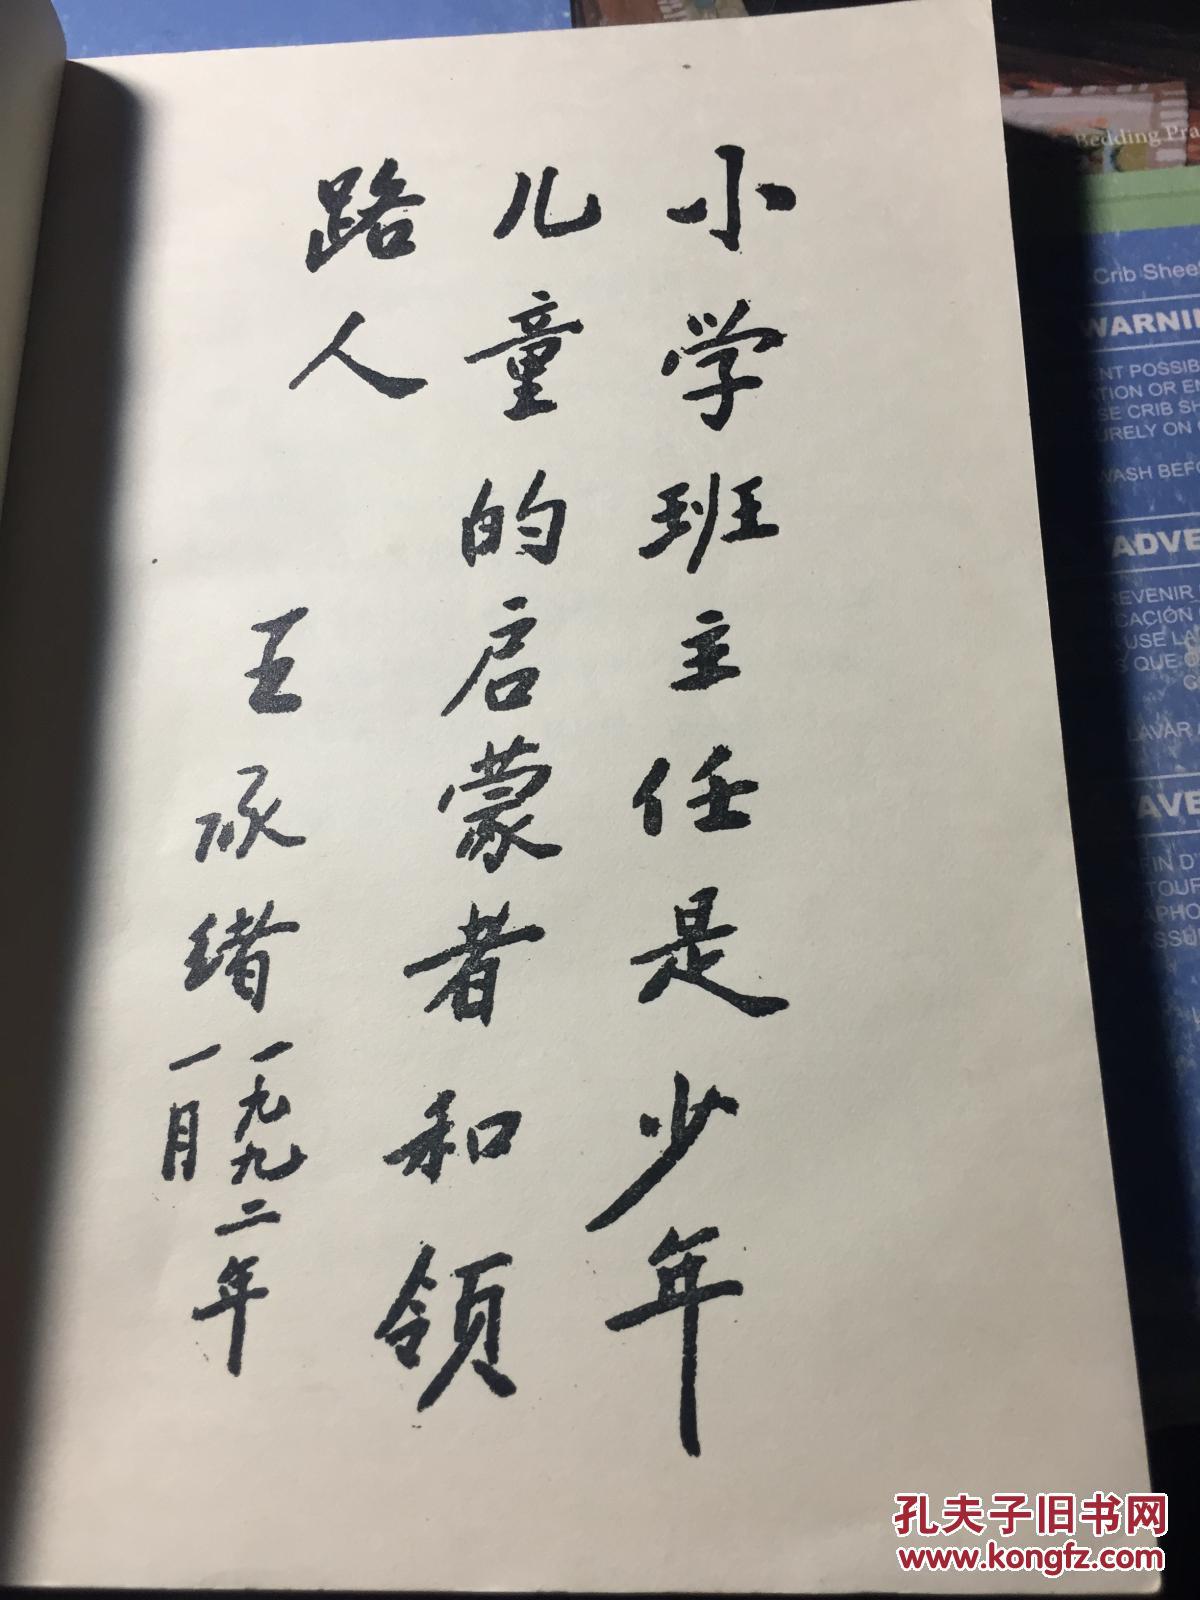 小学班主任是少年
儿童的启蒙者和领
路人
王承绪
一九九二年
一月
Bedding Pra
Crib Shee
WARNI
ENT POSSIB
ATION OR E
SE CRIB SH
URELY ON
WASH BEFO
ADVE
REVENIR
ICACIÓN
USE LA
S QUE
LAVAR A
AVE
FIN D'
TOUF
APHO
ASSU
孔夫子旧书网
www.kongfz.com